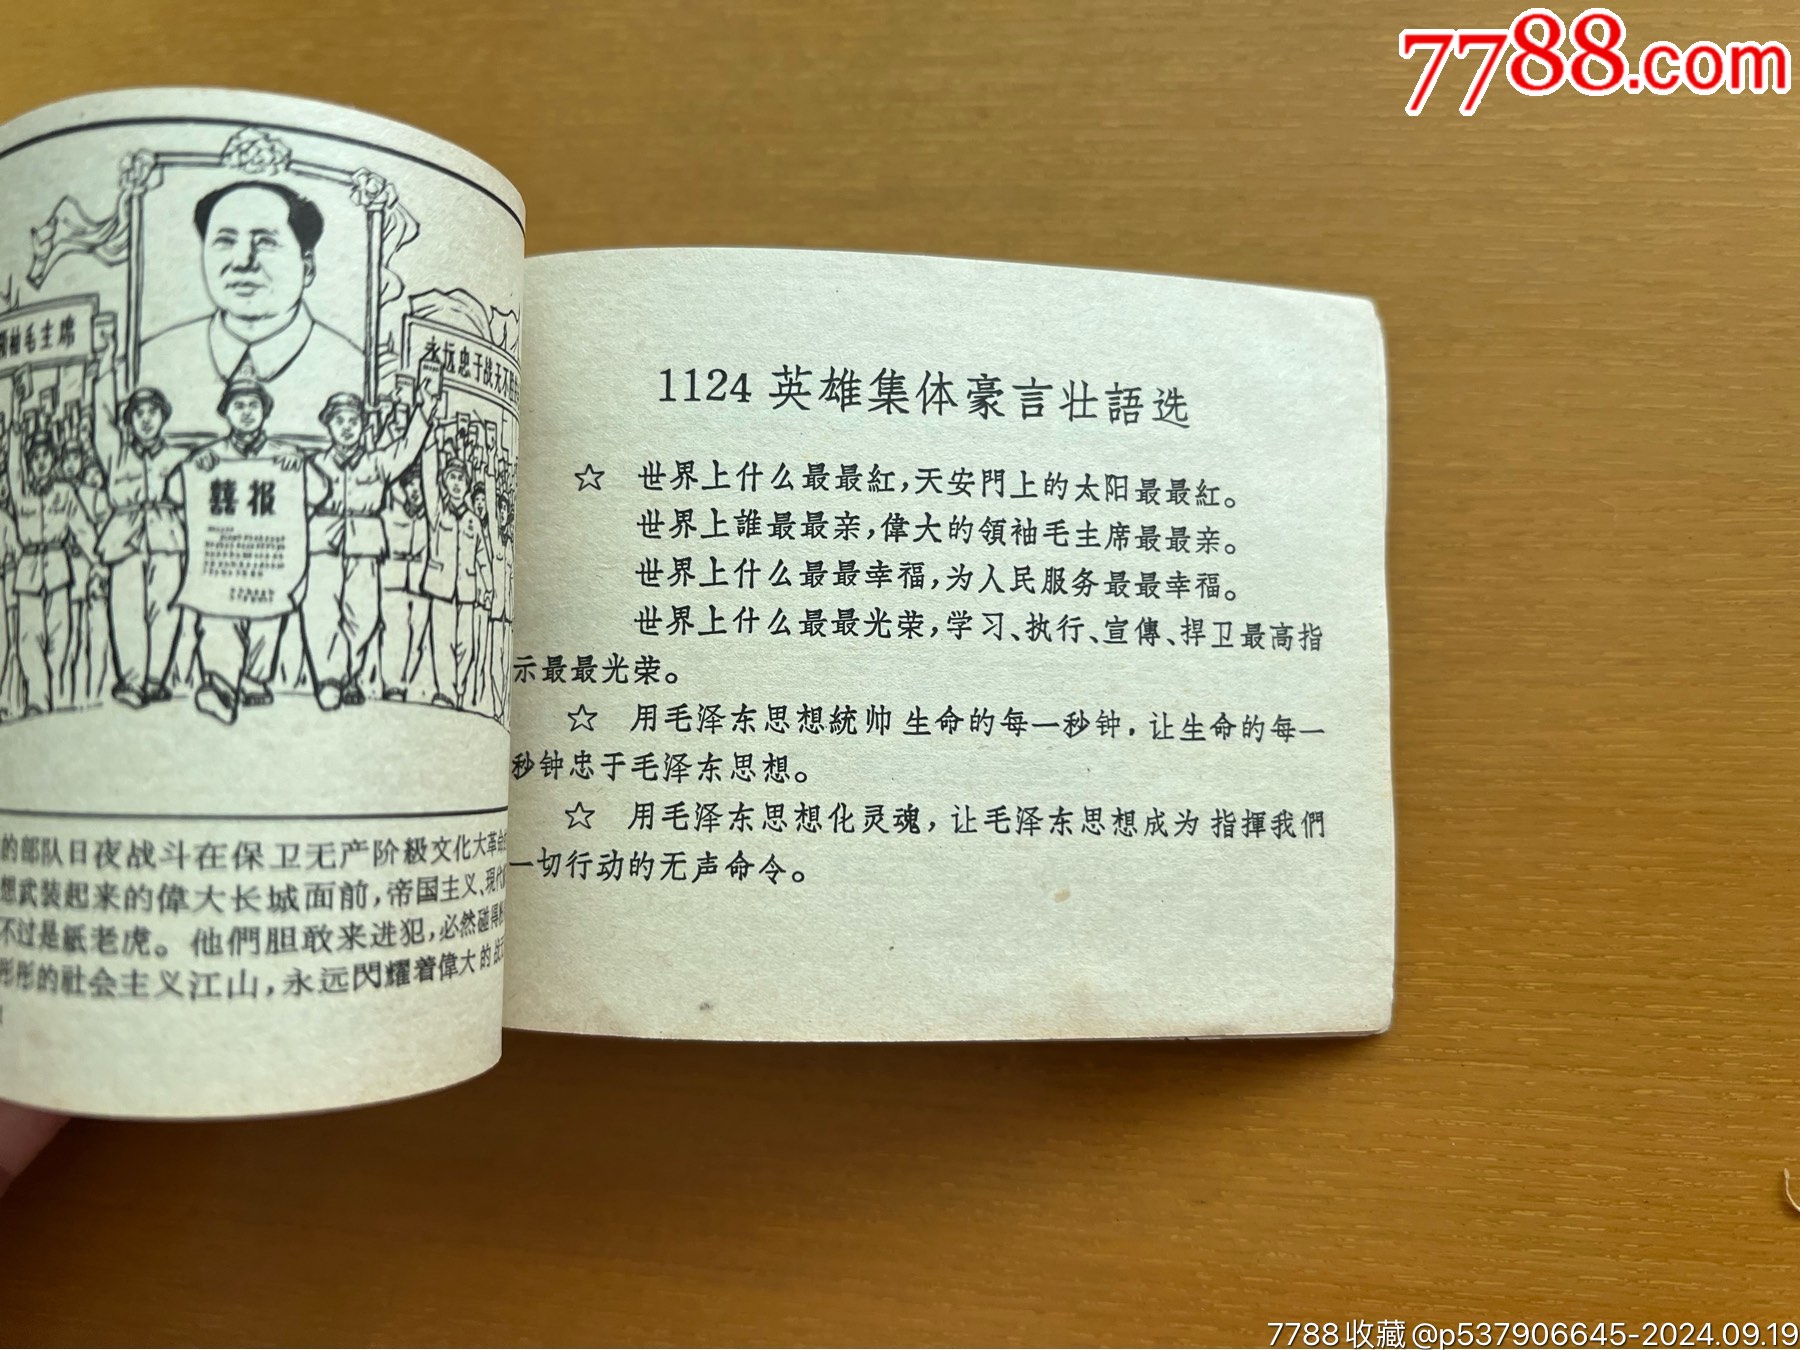 7788.com
袖毛主席
永远忠于战无不胜
囍报
的部队日夜战斗在保卫无产阶級文化大革命
想武装起来的偉大长城面前，帝国主义、現代
不过是紙老虎。他們胆敢来进犯，必然碰得
彤彤的社会主义江山，永远閃耀着偉大的战
1124 英雄集体豪言壮語选
☆ 世界上什么最最紅，天安門上的太阳最最紅。
世界上誰最最亲，偉大的領袖毛主席最最亲。
世界上什么最最幸福，为人民服务最最幸福。
世界上什么最最光荣，学习、执行、宣傳、捍卫最高指
示最最光荣。
☆ 用毛泽东思想統帅生命的每一秒钟，让生命的每一
秒钟忠于毛泽东思想。
☆ 用毛泽东思想化灵魂，让毛泽东思想成为指揮我們
一切行动的无声命令。
7788收藏@p537906645-2024.09.19